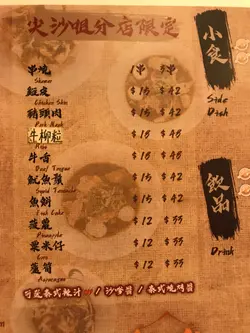 尖沙咀分店限定
小食
Side
Dish
串燒 1串 3串
Skewer
雞皮 $15 $42
Chicken Skin
豬頸肉 $15 $42
Pork Neck
牛柳粒 $18 $48
牛舌 $18 $48
Beef Tongue
魷魚鬚 $15 $42
Squid Tentacles
魚鯛 $15 $42
Fish Cake
菠蘿 $12 $33
Pineapple
粟米仔 $12 $33
Corn
蘆筍 $12 $33
Asparagus
飲品
Drink
可配泰式辣汁 / 沙嗲醬 / 泰式燒雞醬